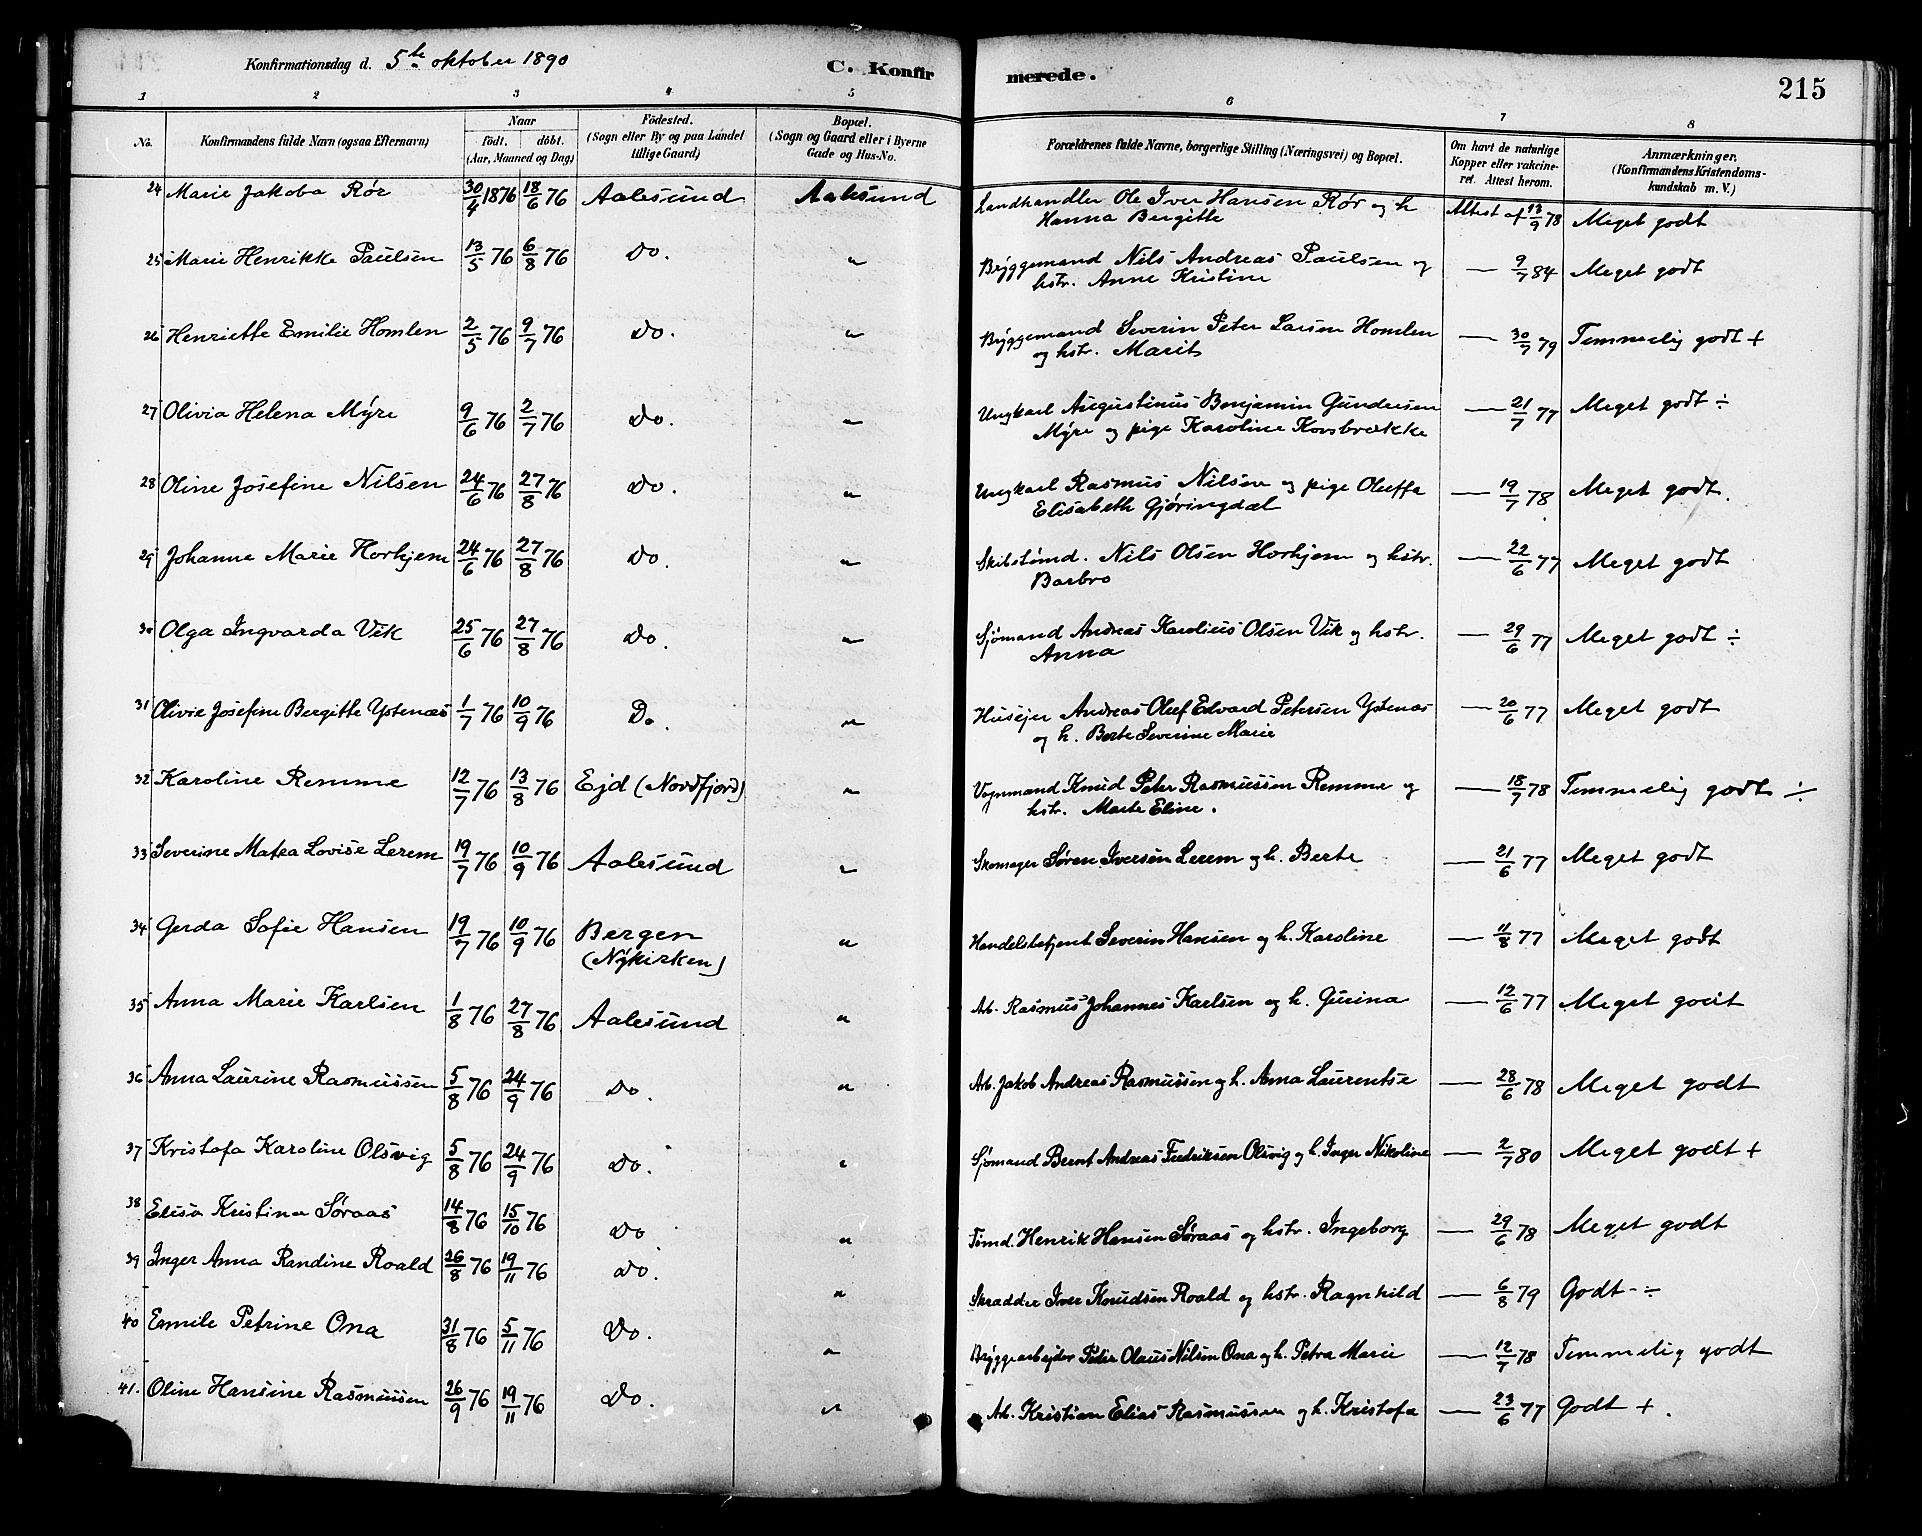 Konfirmationsdag d. 5te oktober 1890 C. Konfirmerede. 215
1 2 3 4 5 6 7 8
No. Konfirmandens fulde Navn (ogsaa Efternavn) Naar født. døbt. (Aar, Maaned og Dag) Fødested. (Sogn eller By og paa Landet tillige Gaard) Bopæl. (Sogn og Gaard eller i Byerne Gade og Hus-No. Forældrenes fulde Navne, borgerlige Stilling (Næringsvei) og Bopæl. Om havt de naturlige Kopper eller vakcineret. Attest herom. Anmærkninger. (Konfirmandens Kristendomskundskab m. V.)
24 Marie Jakoba Rør 30/4 1876 18/6 76 Aalesund Aalesund Landhandler Ole Iver Hansen Rør og h. Attest af 13/9 78 Meget godt
Hanna Bergitte
25 Marie Henrikke Paulsen 13/5 76 6/8 76 Do. " Bryggemand Nils Andreas Paulsen og — 9/7 84 Meget godt
hstr. Anne Kristine
26 Henriette Emilie Homlen 2/5 76 9/7 76 Do. " Bryggemand Severin Peter Larsen Homlen — 30/7 79 Temmelig godt +
og hstr. Marit
27 Olivia Helena Myre 9/6 76 2/7 76 Do. " Ungkarl Augustinus Benjamin Gundersen — 21/7 77 Meget godt ÷
Myre og pige Karoline Kovsbrække
28 Oline Josefine Nilsen 24/6 76 27/8 76 Do. " Ungkarl Rasmus Nilsen og pige Oluffa — 19/7 78 Meget godt.
Elisabeth Gjøringdal
29 Johanne Marie Horhjem 24/6 76 27/8 76 Do. " Skibstømd. Nils Olsen Horhjem og hstr. — 22/6 77 Meget godt
Barbro
30 Olga Ingvarda Vik 25/6 76 27/8 76 Do. " Sjømand Andreas Karolius Olsen Vik og hstr. — 29/6 77 Meget godt ÷
Anna
31 Olivie Josefine Bergitte Ystenæs 1/7 76 10/9 76 Do. " Husejer Andreas Oluf Edvard Petersen Ystenæs — 20/6 77 Meget godt
og h. Berte Severine Marie
32 Karoline Remme 12/7 76 13/8 76 Ejd (Nordfjord) " Vognmand Knud Peter Rasmussen Remme og — 18/7 78 Temmelig godt ÷
hstr. Marte Eline.
33 Severine Matea Lovise Lerem 19/7 76 10/9 76 Aalesund " Skomager Søren Iversen Lerem og h. Berte — 21/6 77 Meget godt
34 Gerda Sofie Hansen 19/7 76 10/9 76 Bergen " Handelsbetjent Severin Hansen og h. Karoline — 11/8 77 Meget godt
(Nykirken)
35 Anna Marie Karlsen 1/8 76 27/8 76 Aalesund " Arb. Rasmus Johannes Karlsen og h. Gurina — 12/6 77 Meget godt
36 Anna Laurine Rasmussen 5/8 76 24/9 76 Do. " Arb. Jakob Andreas Rasmussen og h. Anna Laurentse — 28/6 78 Meget godt
37 Kristofa Karoline Olsvig 5/8 76 24/9 76 Do. " Sjømand Bernt Andreas Fredriksen Olsvig og h. Inger Nikoline — 2/7 80 Meget godt +
38 Elisa Kristina Søraas 14/8 76 15/10 76 Do " Tømd. Henrik Hansen Søraas og hstr. Ingeborg — 29/6 78 Meget godt
39 Inger Anna Randine Roald 26/8 76 19/11 76 Do. " Skradder Iver Knudsen Roald og hstr. Ragnhild — 6/8 79 Godt - ÷
40 Emile Petrine Ona 31/8 76 5/11 76 Do. " Bryggearbejder Peder Olaus Nilsen Ona og h. Petra Marie — 12/7 78 Temmelig godt
41. Oline Hansine Rasmussen 26/9 76 19/11 76 Do. " Arb. Kristian Elias Rasmussen og h. Kristofa — 23/6 77 Godt +.